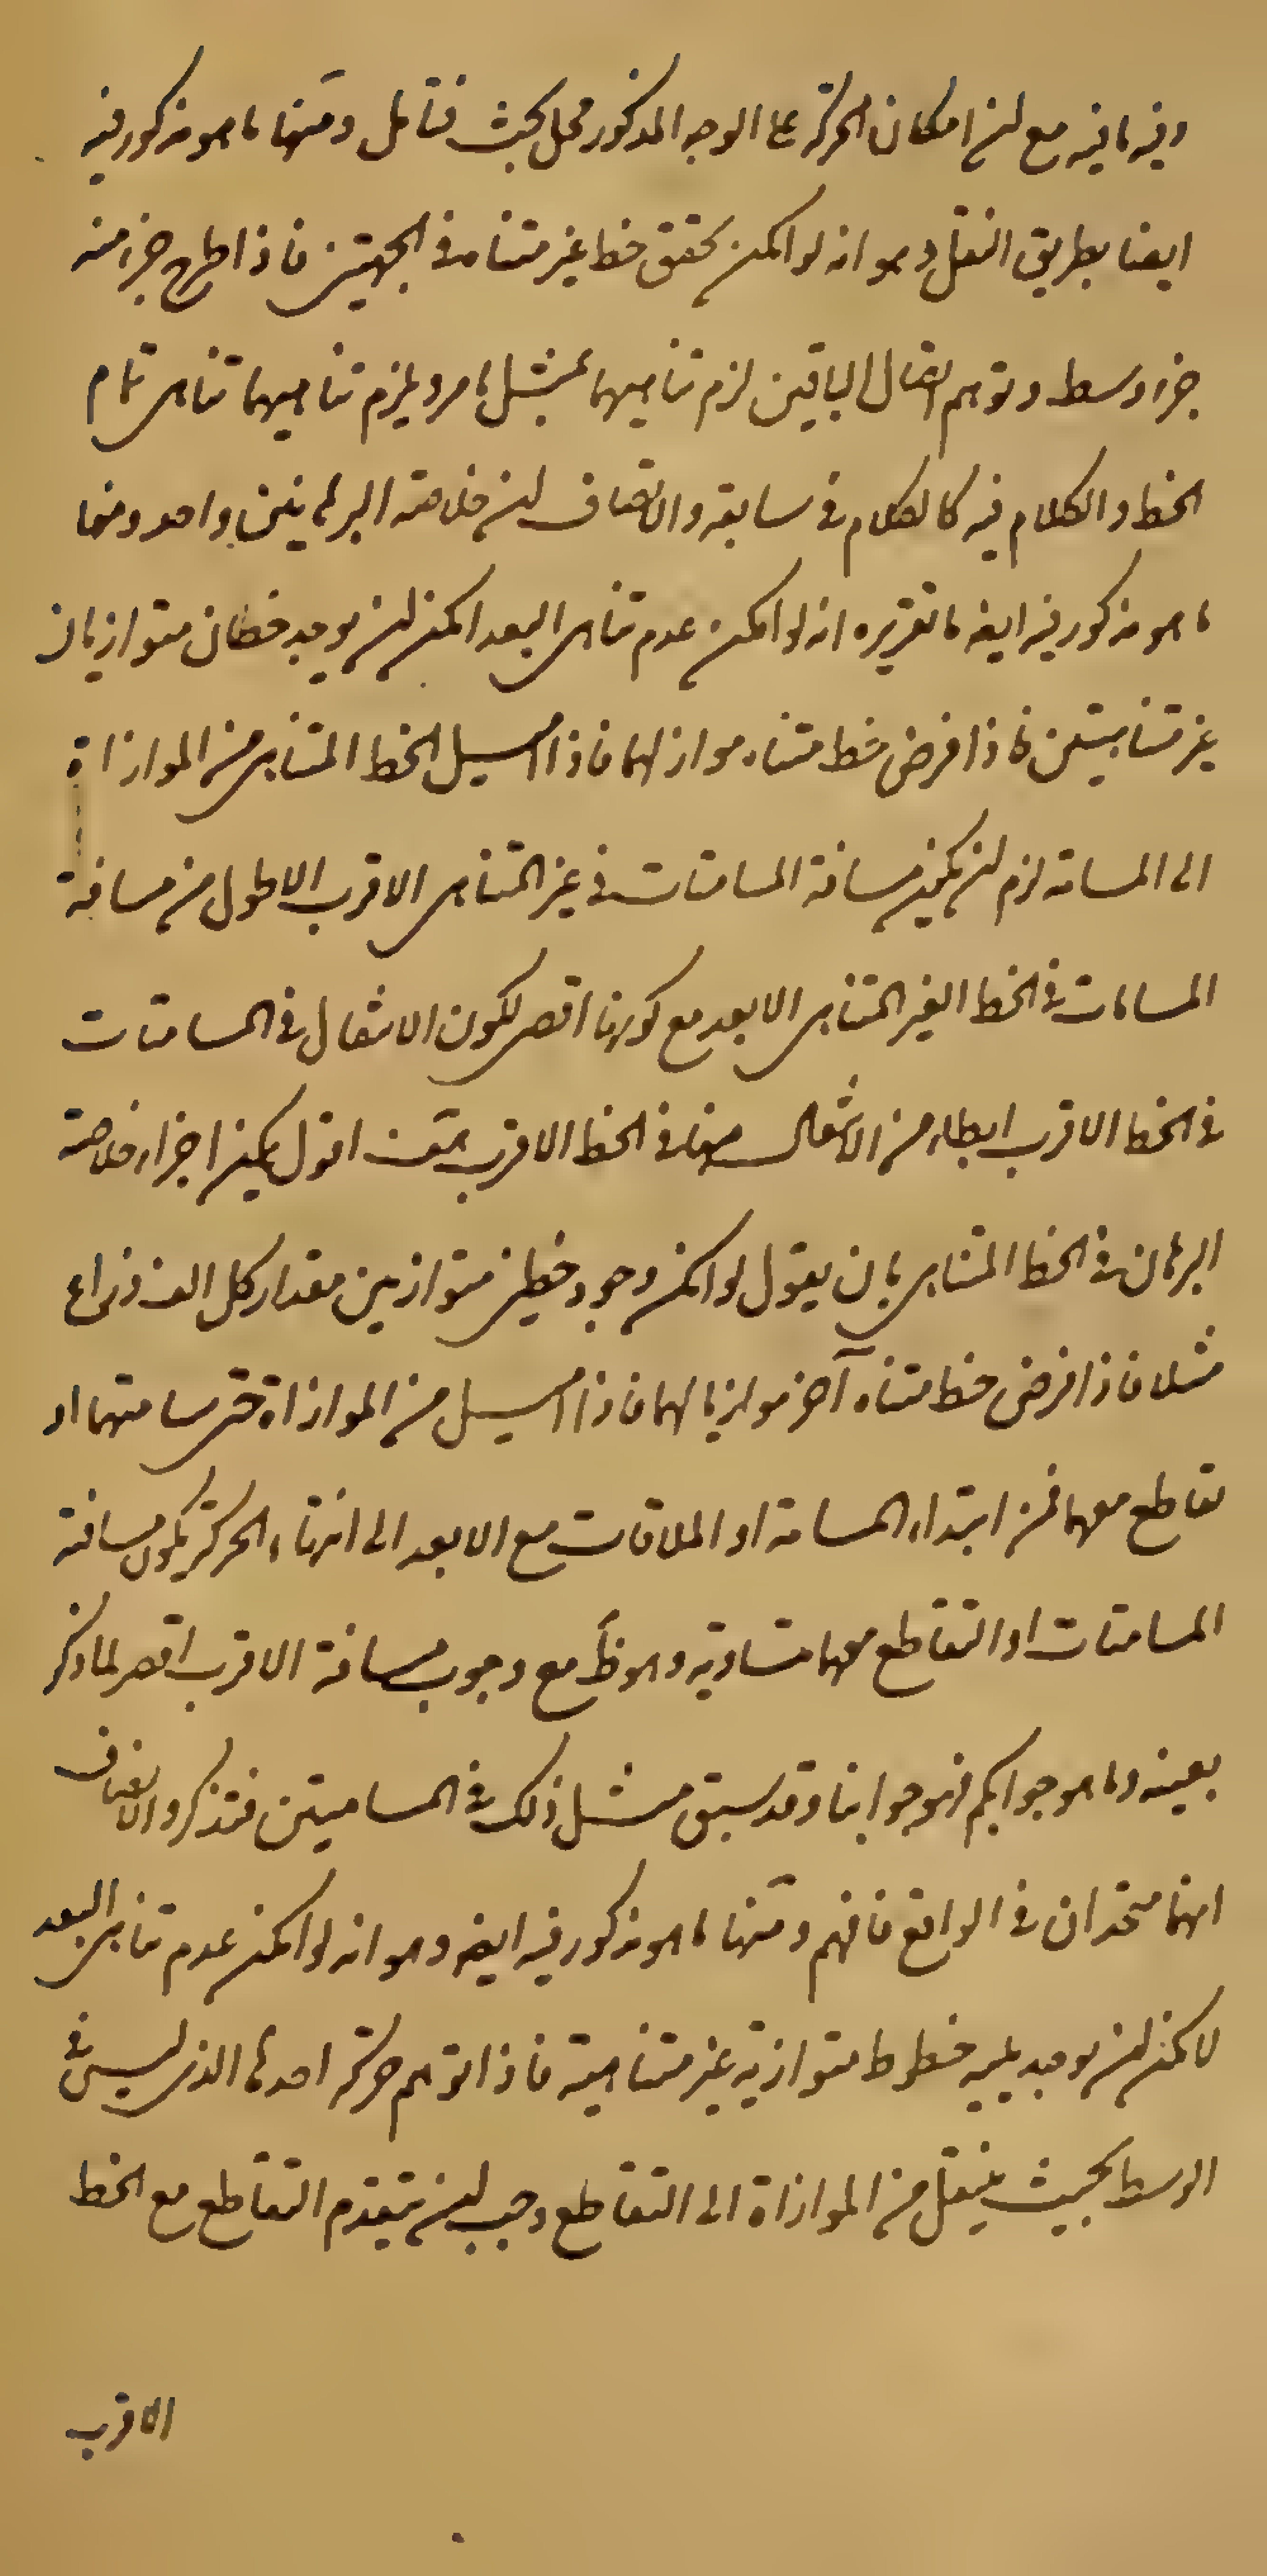 وفيه ما فيه مع ان امكان الحركة على الوجه المذكور محل بحث فتامل ومنها ما هو مذكور فيه
ايضا بطريق النقل وهو انه لو امكن تحقق خط غير متناه في الجهتين فاذا طرح جزء منه
جزء وسط وتوهم اتصال الباقيين لزم تناهيهما بمثل ما مر ويلزم تناهيهما تناهي تمام
الخط والكلام فيه كالكلام في سابقه والانصاف ان خلاصة البرهانين واحد ومنها
ما هو مذكور فيه ايضه ما تقريره انه لو امكن عدم تناهي البعد امكن ان يوجد خطان متوازيان
غير متناهيتين فاذا فرض خط متناه مواز لهما فاذا اميل الخط المتناهي من الموازاة
الى المسامتة لزم ان يكون مسافة المسامتات في غير المتناهي الاقرب الاطول من مسافة
المسامتات في الخط الغير المتناهي الابعد مع كونها اقصر لكون الانتقال في المسامتات
في الخط الاقرب ابطاء من الانتقال منها في الخط الاقرب اقول يمكن اجزاء خلاصة
البرهان في الخط المتناهي بان يقول لو امكن وجود خطين متوازيين مقدار كل الف ذراع
مثلا فاذا فرض خط متناه آخر موازيا لهما فاذا اميل من الموازاة حتى سامتهما او
تقاطع معهما فمن ابتداء المسامتة او الملاقات مع الابعد الى انتهاء الحركة يكون مسافة
المسامتات او التقاطع معهما متساوية وهو ظ مع وجوب مسافة الاقرب اقصر لما ذكر
بعينه وما هو جوابكم فهو جوابنا وقد سبق مثل ذلك في المساميتين فتذكر والانصاف
انهما متحدان في الواقع فافهم ومنها ما هو مذكور فيه ايضه وهو انه لو امكن عدم تناهي البعد
لامكن ان يوجد خطوط متوازية غير متناهية فاذا توهم حركة احدها الذي ليس في
الوسط بحيث ينتقل من الموازاة الى التقاطع وجب ان يتقدم التقاطع مع الخط
الاقرب